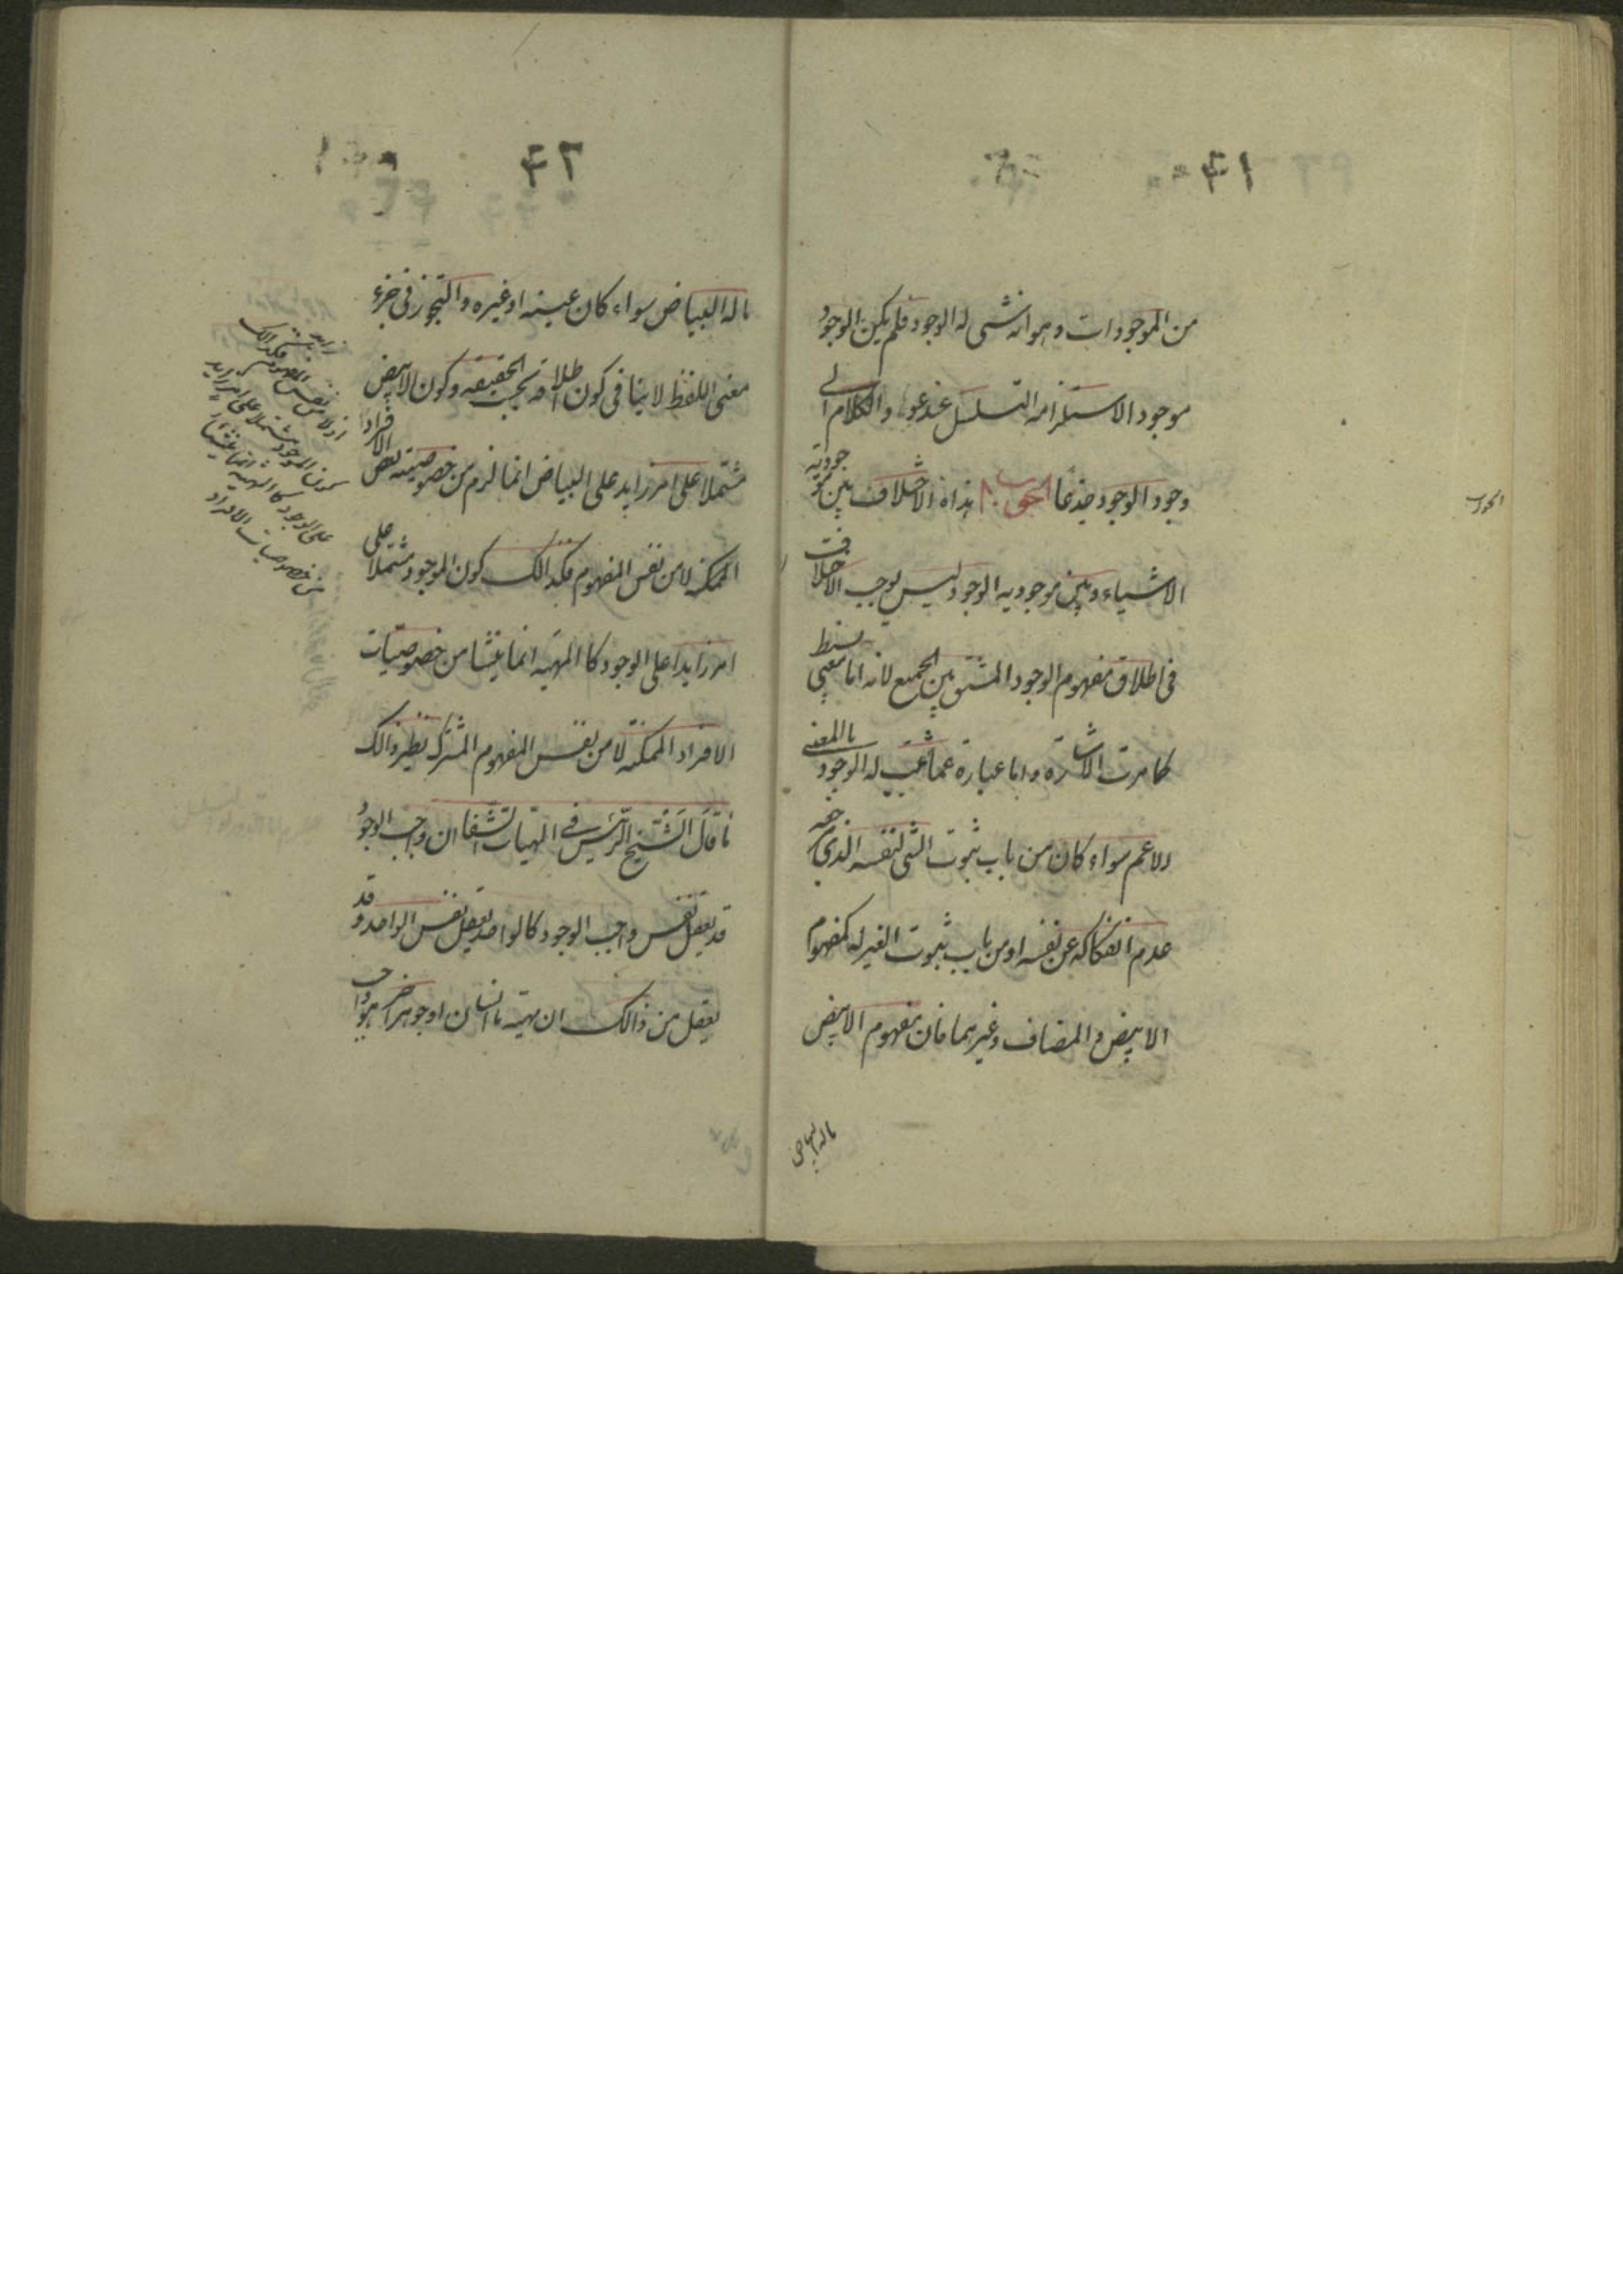 ٤١
من الموجودات وهو انه شئ له الوجود فلم يكن الوجود
موجود الاستلزامه التسلسل عند عود الكلام الى
وجود الوجود جذعا جواب هذا الاختلاف بين موجودية
الاشياء وبين موجودية الوجود ليس يوجب الاختلاف
فى اطلاق مفهوم الوجود المشتق بين الجميع لانه اما معنى بسيط
كما مرت الاشارة واما عبارة عما ثبت له الوجود بالمعنى
الاعم سواء كان من باب ثبوت الشئ لنفسه الذى مرجعه
عدم انفكاكه عن نفسه او من باب ثبوت الغير له كمفهوم
الابيض والمضاف وغيرهما فان مفهوم الابيض
ماله البياض
الجواب
٤٢
ماله البياض سواء كان عينه او غيره والتجوز فى جزء
معنى اللفظ لا ينافى كون اطلاقه بحسب الحقيقه وكون الابيض
مشتملا على امر زايد على البياض انما لزم من خصوصيته بعض الافراد
الممكنه لا من نفس المفهوم فكذالك كون الموجود مشتملا على
امر زايدا على الوجود كا المهيه انما ينشا من خصوصيات
الافراد الممكنة لا من نفس المفهوم المشترك نظير ذالك
ما قال الشيخ الرئيس فى الهيات الشفا ان واجب الوجود
قد يعقل نفس واجب الوجود كالواحد يعقل نفس الواحد وقد
يعقل من ذالك ان مهيته ما انسان او جوهر اخر هو واجب
لا من نفس المفهوم فكذالك
كون الموجود مشتملا على امر زايد
على الوجود كا المهيه انما ينشأ
من خصوصيات الافراد